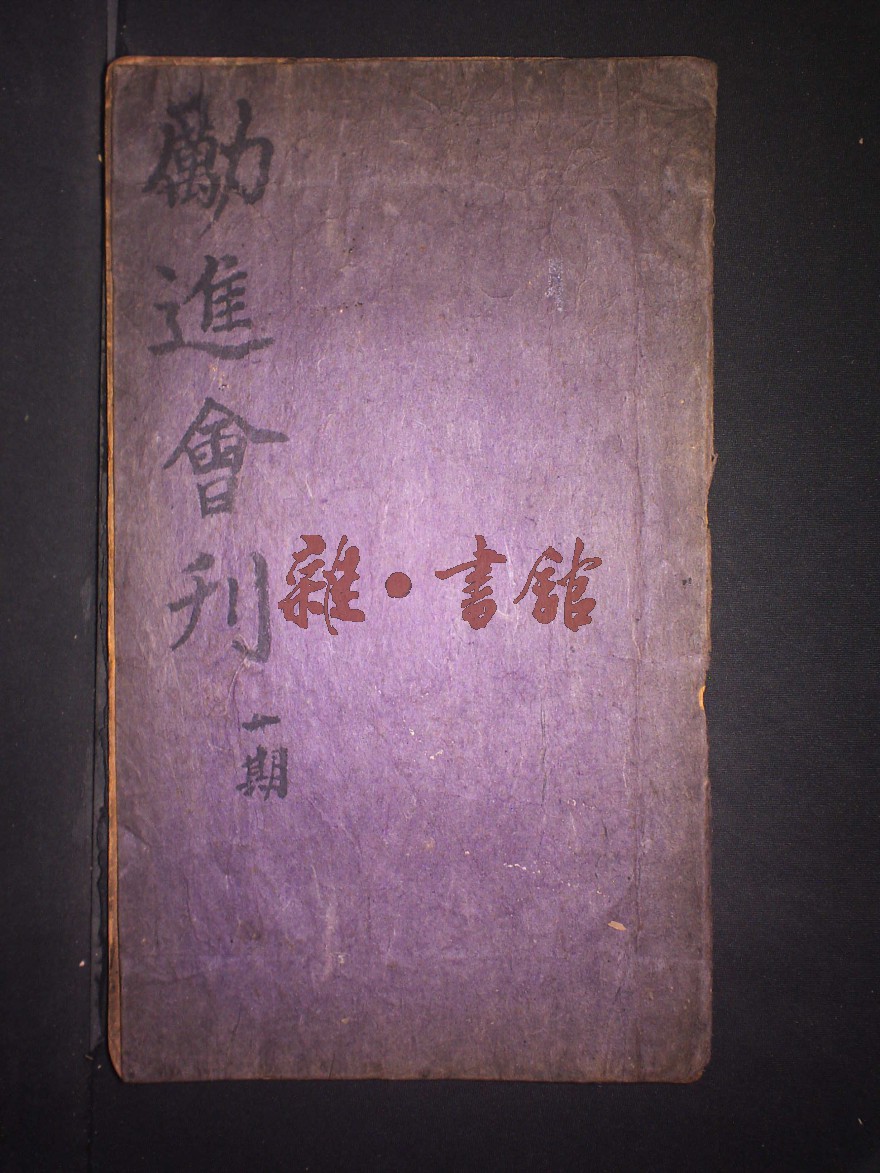 勵進會刊
一期
雜·書館